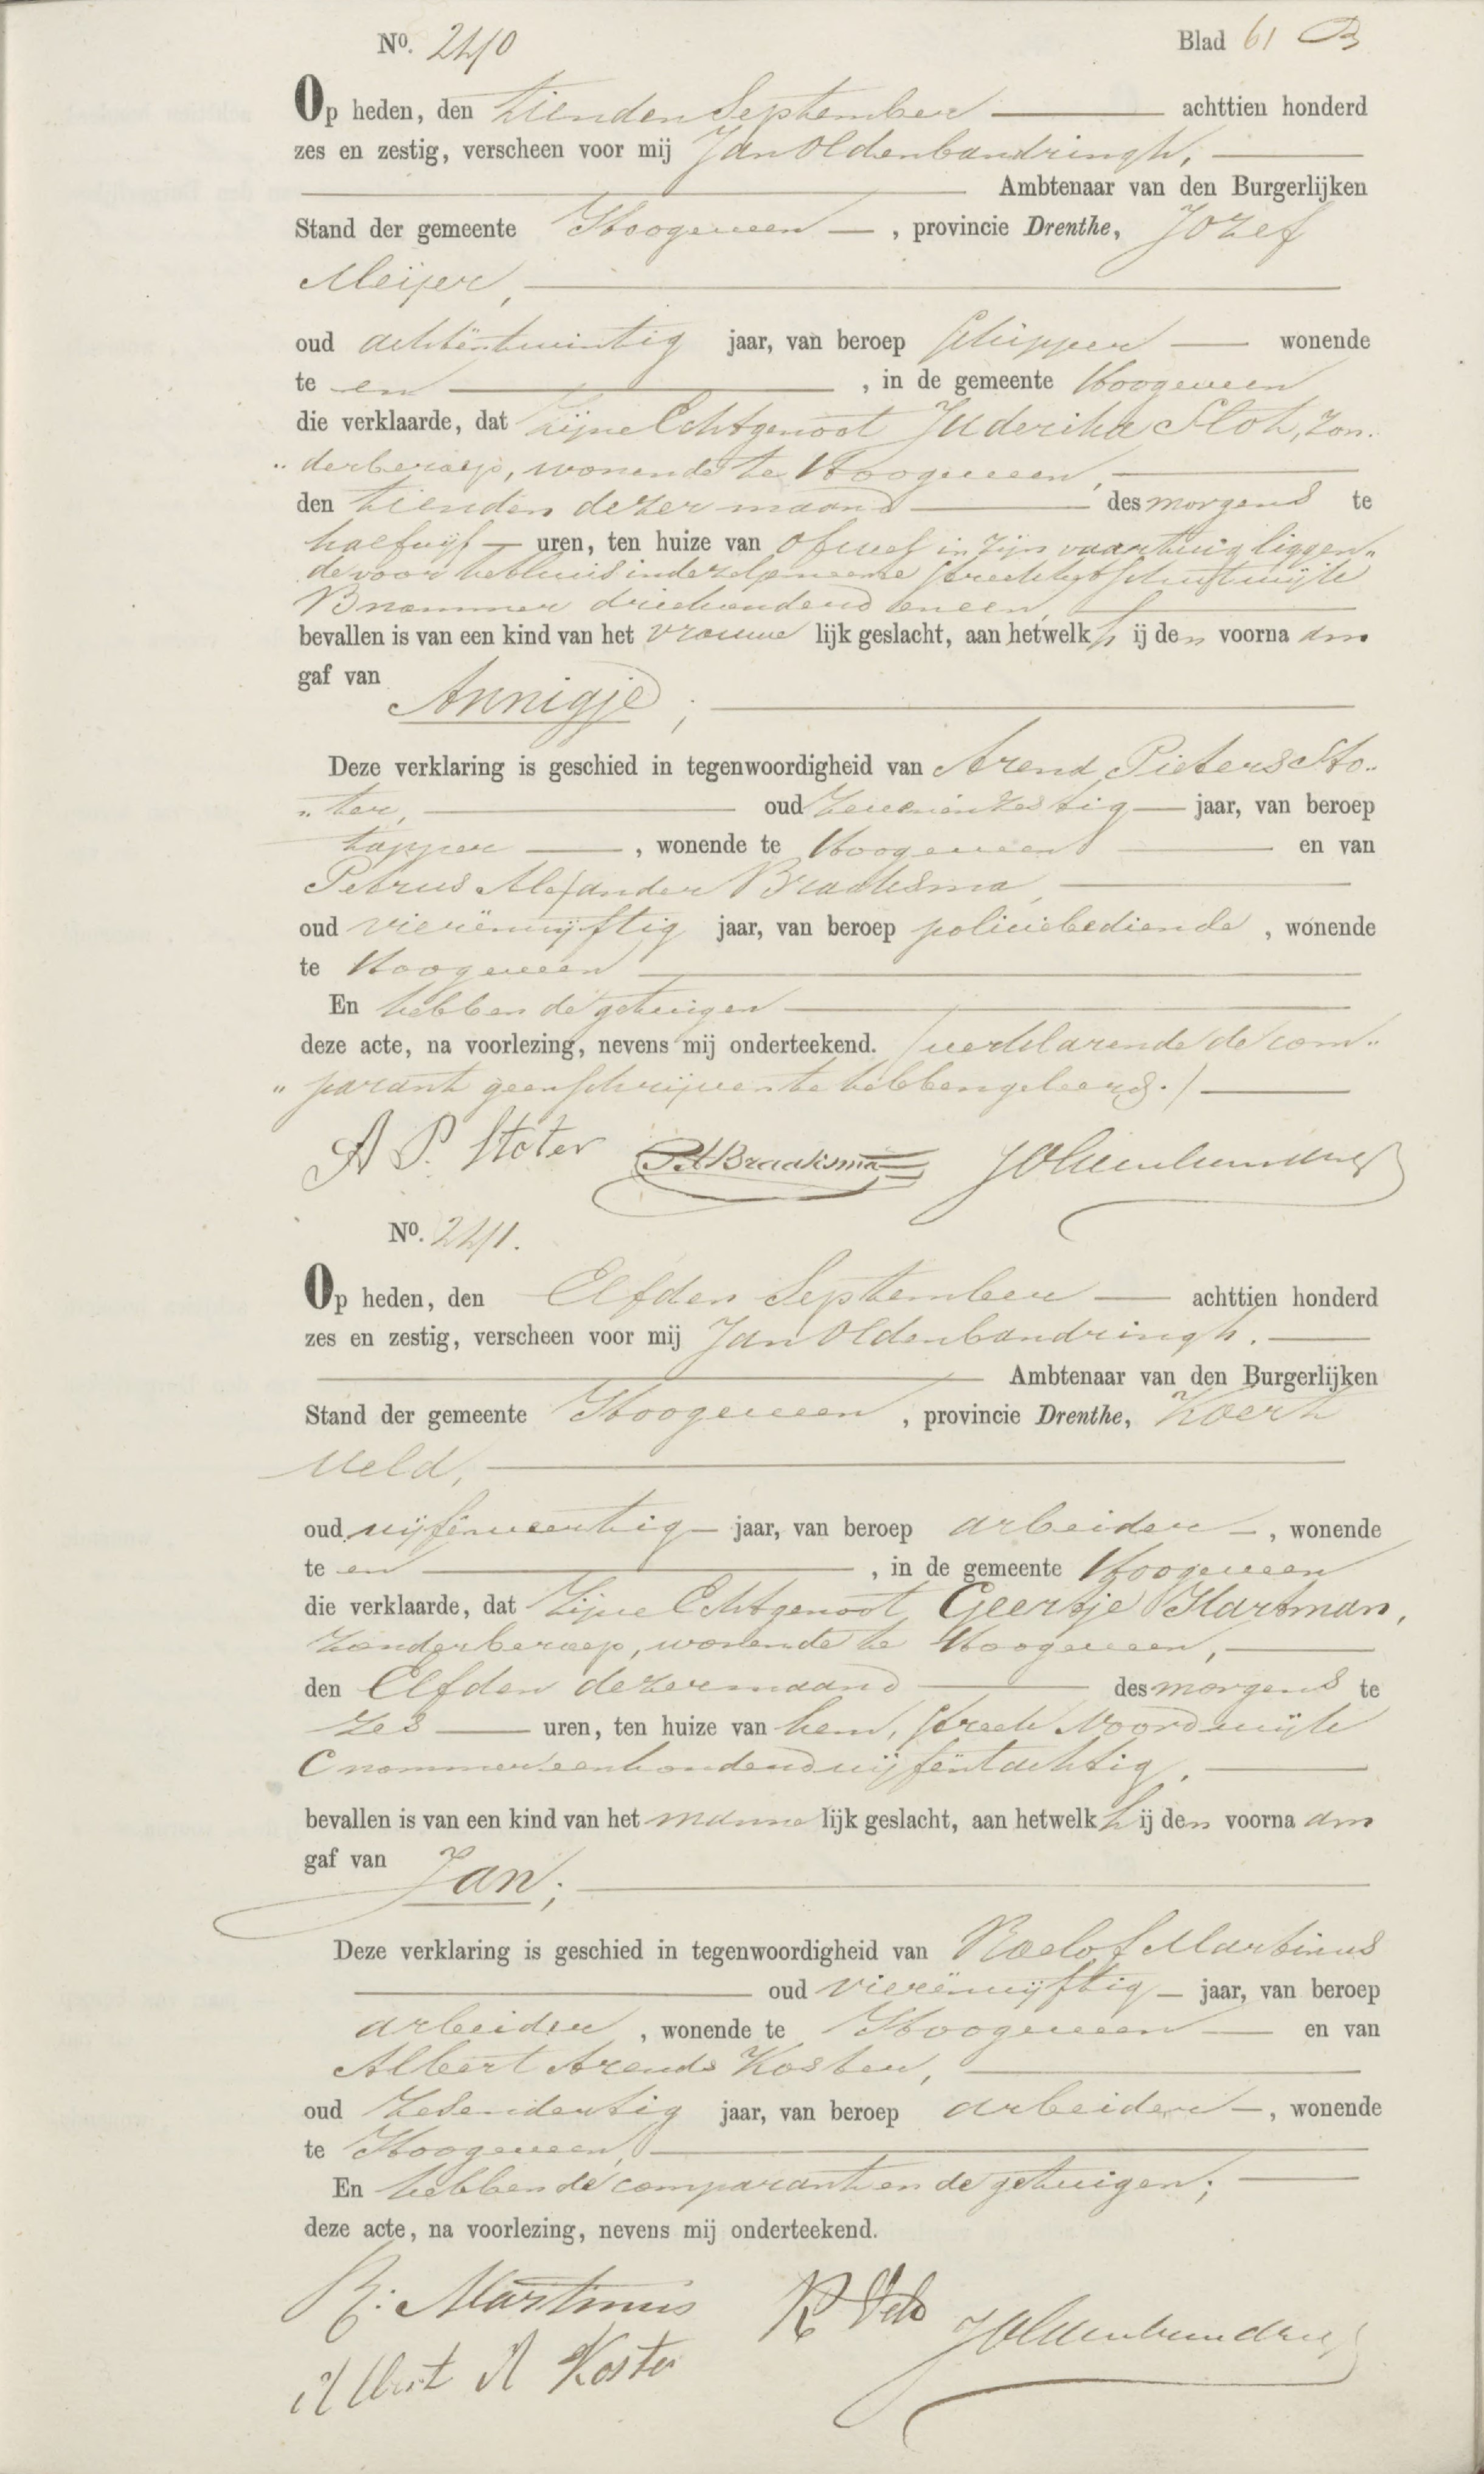 No. 240 Blad 61 B
Op heden, den tienden September achttien honderd
zes en zestig, verscheen voor mij Jan Oldenbandringh,
Ambtenaar van den Burgerlijken
Stand der gemeente Hoogeveen, provincie Drenthe, Jozef
Meijer,
oud achtëntwintig jaar, van beroep schipper wonende
te en , in de gemeente Hoogeveen
die verklaarde, dat zijne Echtgenoot Juderika Slot, zon-
"derberoep, wonende te Hoogeveen,
den tienden dezer maand des morgens te
halfvijf uren, ten huize van ofwel in zijn vaartuig liggen"
de voor het huis in dezelfde gemeente
B nommer driehonderd en een,
bevallen is van een kind van het vrouwe lijk geslacht, aan hetwelk hij den voornaam
gaf van Annigje;
Deze verklaring is geschied in tegenwoordigheid van Arend Pieters Sto-
"ter, oud zevenënzestig jaar, van beroep
tapper, wonende te Hoogeveen en van
Petrus Alexander Braaksma,
oud vierënvijftig jaar, van beroep policiebediende, wonende
te Hoogeveen
En hebben de getuigen
deze acte, na voorlezing, nevens mij onderteekend. /verklarende de com-
"parant geen schrijven te hebben geleerd./
A P. Stoter PABraaksma JOldenbandringh
No. 241.
Op heden, den Elfden September achttien honderd
zes en zestig, verscheen voor mij Jan Oldenbandringh.
Ambtenaar van den Burgerlijken
Stand der gemeente Hoogeveen, provincie Drenthe, Koert
Veld,
oud vijfënveertig jaar, van beroep arbeider, wonende
te en , in de gemeente Hoogeveen
die verklaarde, dat zijne Echtgenoot Geertje Hartman,
zonderberoep, wonende te Hoogeveen,
den Elfden dezer maand des morgens te
zes uren, ten huize van hem, streek Noord wijk
C nommer eenhonderd vijfëntachtig.
bevallen is van een kind van het manne lijk geslacht, aan hetwelk hij den voornaam
gaf van Jan;
Deze verklaring is geschied in tegenwoordigheid van Roelof Martinus
oud vierënvijftig jaar, van beroep
arbeider, wonende te Hoogeveen en van
Albert Arends Koster,
oud zesendertig jaar, van beroep arbeider, wonende
te Hoogeveen,
En hebben de comparant en de getuigen;
deze acte, na voorlezing, nevens mij onderteekend.
R. Martinus K Veld JOldenbandringh
Albert A Koster